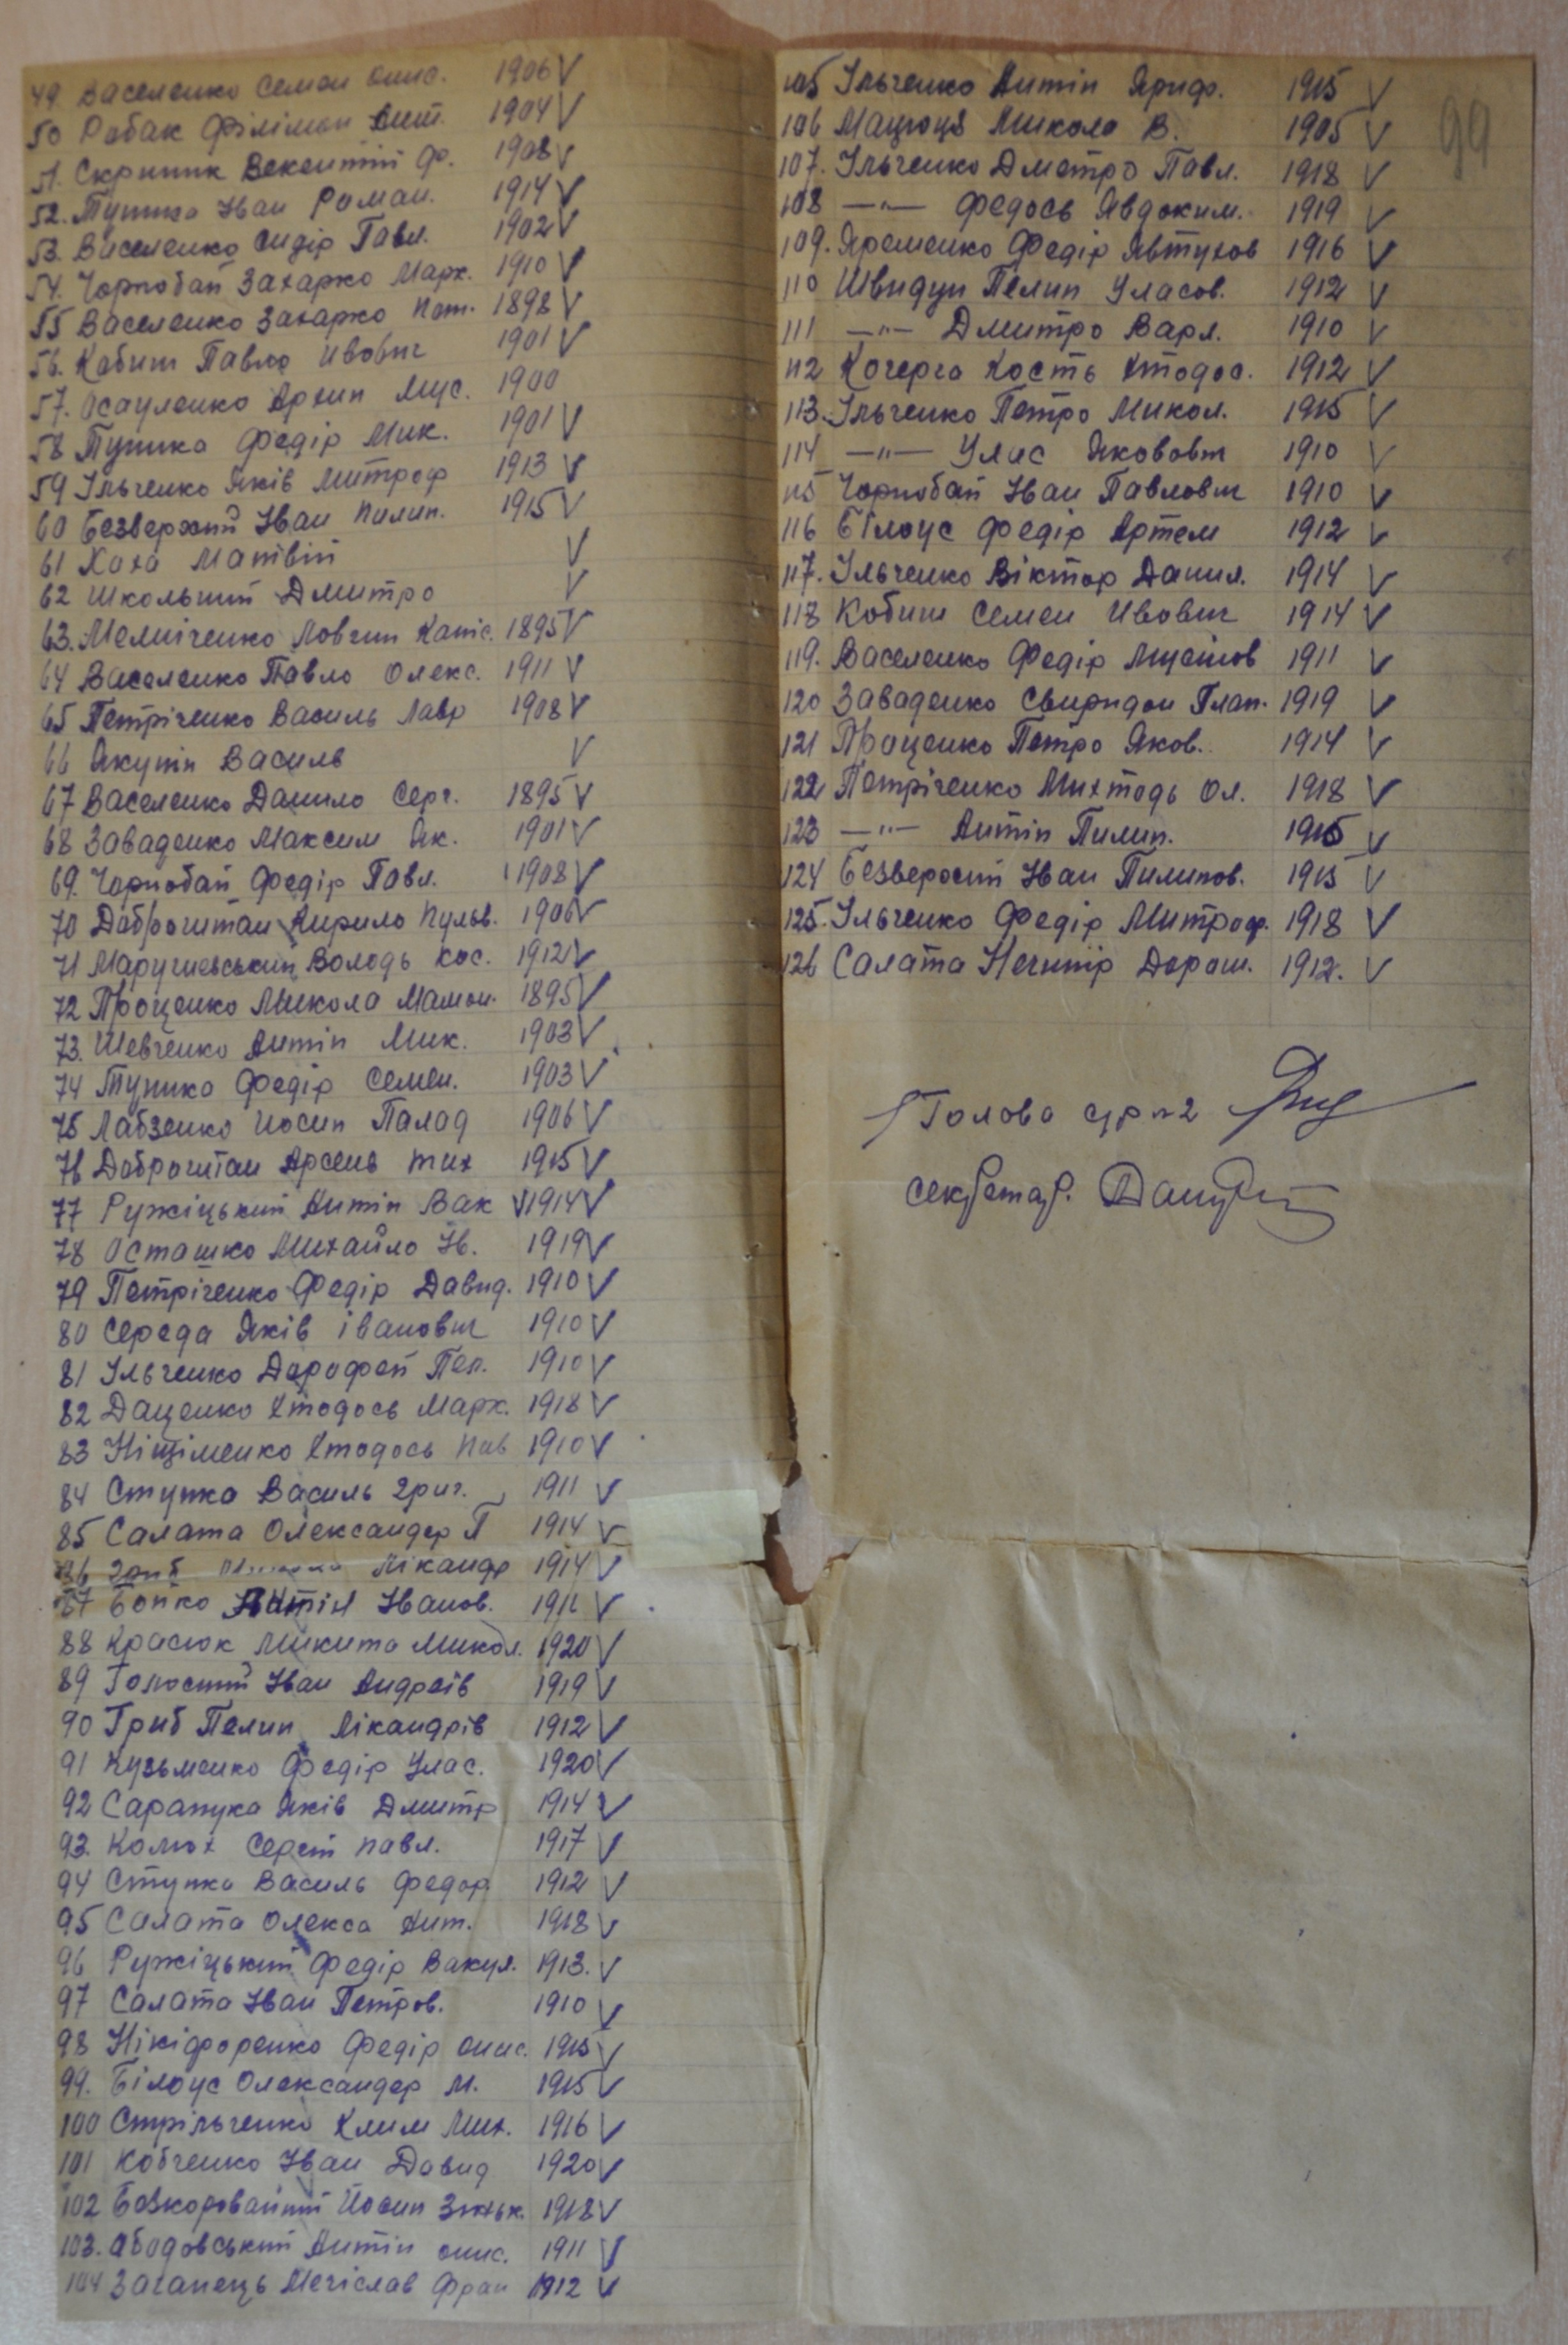 49. Василенко Семен Онис. 1906 V
50 Рабак Філімон Ант. 1904 V
51. Скрипник Векентій Ф. 1908 V
52. Тупика Іван Роман. 1914 V
53. Василенко Сидір Павл. 1902 V
54. Чорнобай Захарко Марк. 1910 V
55 Василенко Захарко Пот. 1898 V
56. Кобиш Павло Ивович 1901 V
57. Осауленко Архип Мус. 1900
58 Тупика Федір Мик. 1901 V
59 Ільченко Яків Митроф 1913 V
60 Безверхий Іван Пилип. 1915 V
61 Хаха Матвій V
62 Школьний Дмитро V
63. Мельніченко Ловгин Капіс. 1895 V
64 Василенко Павло Олекс. 1911 V
65 Петріченко Василь Лавр 1908 V
66 Якутін Василь V
67 Василенко Данило Серг. 1895 V
68 Заваденко Максим Як. 1901 V
69. Чорнобай Федір Павл. 1908 V
70 Доброштан Кирило Кульв. 1906 V
71 Маручиевський Володь Кос. 1912 V
72 Проценко Микола Мамон. 1895 V
73. Шевченко Антін Мик. 1903 V
74 Тупика Федір Семен. 1903 V
75 Лабзенко Иосип Палад 1906 V
76 Доброштан Арсень Тих 1915 V
77 Ружіцький Антін Вак V 1914 V
78 Осташко Михайло Ів. 1919 V
79 Петріченко Федір Давид. 1910 V
80 Середа Яків Іванович 1910 V
81 Ільченко Дорофей Пел. 1910 V
82 Даценко Хтодось Марк. 1918 V
83 Ніщіменко Хтодось Пав 1910 V
84 Ступка Василь Григ. 1911 V
85 Салата Олександер П 1914 V
86 Лікандр 1914 V
87 Бойко Іванов. 1911 V
88 Красюк Микита Микол. 1920 V
89 Голосний Іван Андреїв 1919 V
90 Гриб Пелип Лікандрів 1912 V
91 Кузьменко Федір Улас. 1920 V
92 Сарапука Яків Дмитр 1914 V
93. Колюх Сергій Павл. 1917 V
94 Ступка Василь Федор 1912 V
95 Салата Олекса Ант. 1918 V
96 Ружіцький Федір Вакул. 1913. V
97 Салата Іван Петров. 1910 V
98 Нікіфоренко Федір Онис. 1915 V
99. Білоус Олександер М. 1915 V
100 Стрільченко Клим Мих. 1916 V
101 Кобченко Іван Давид 1920 V
102 Безкоровайний Йосип Зіньк. 1918 V
103. Абодовський Антін Онис. 1911 V
104 Заганець Мечіслав Фран 1912 V
99
105 Ільченко Антін Яриф. 1915 V
106 Мацюця Микола В. 1905 V
107. Ільченко Дметро Павл. 1918 V
108 —"— Федось Явдоким. 1919 V
109. Яременко Федір Явтухов 1916 V
110 Швидун Пелип Уласов. 1912 V
111 —"— Дмитро Варл. 1910 V
112 Кочерга Кость Хтодос. 1912 V
113. Ільченко Петро Микол. 1915 V
114 —"— Улас Якововч 1910 V
115 Чорнобай Іван Павлович 1910 V
116 Білоус Федір Артем 1912 V
117. Ільченко Віктор Данил. 1914 V
118 Кобиш Семен Ивович 1914 V
119. Василенко Федір Мусійов 1911 V
120 Заваденко Свиридон Плат. 1919 V
121 Проценко Петро Яков. 1914 V
122 Петріченко Михтодь Ол. 1918 V
123 —"— Антін Пилип. 1915 V
124 Безверхий Іван Пилипов. 1915 V
125. Ільченко Федір Митроф. 1918 V
126 Салата Нечипір Дорош. 1912. V
Голова с/р №2
Секретар.